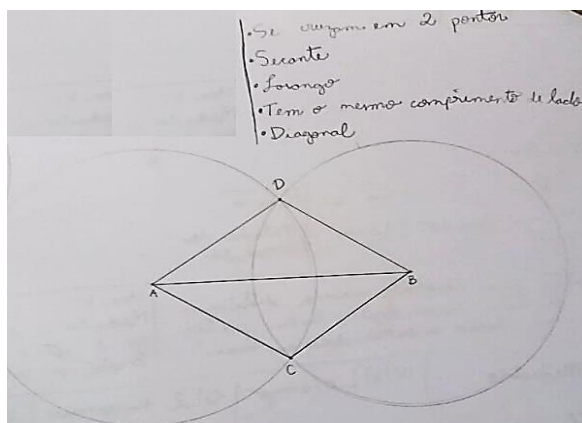 • Se cruzam em 2 pontos
• Secante
• Losango
• Tem o mesmo comprimento de lado
• Diagonal
D
A
B
C